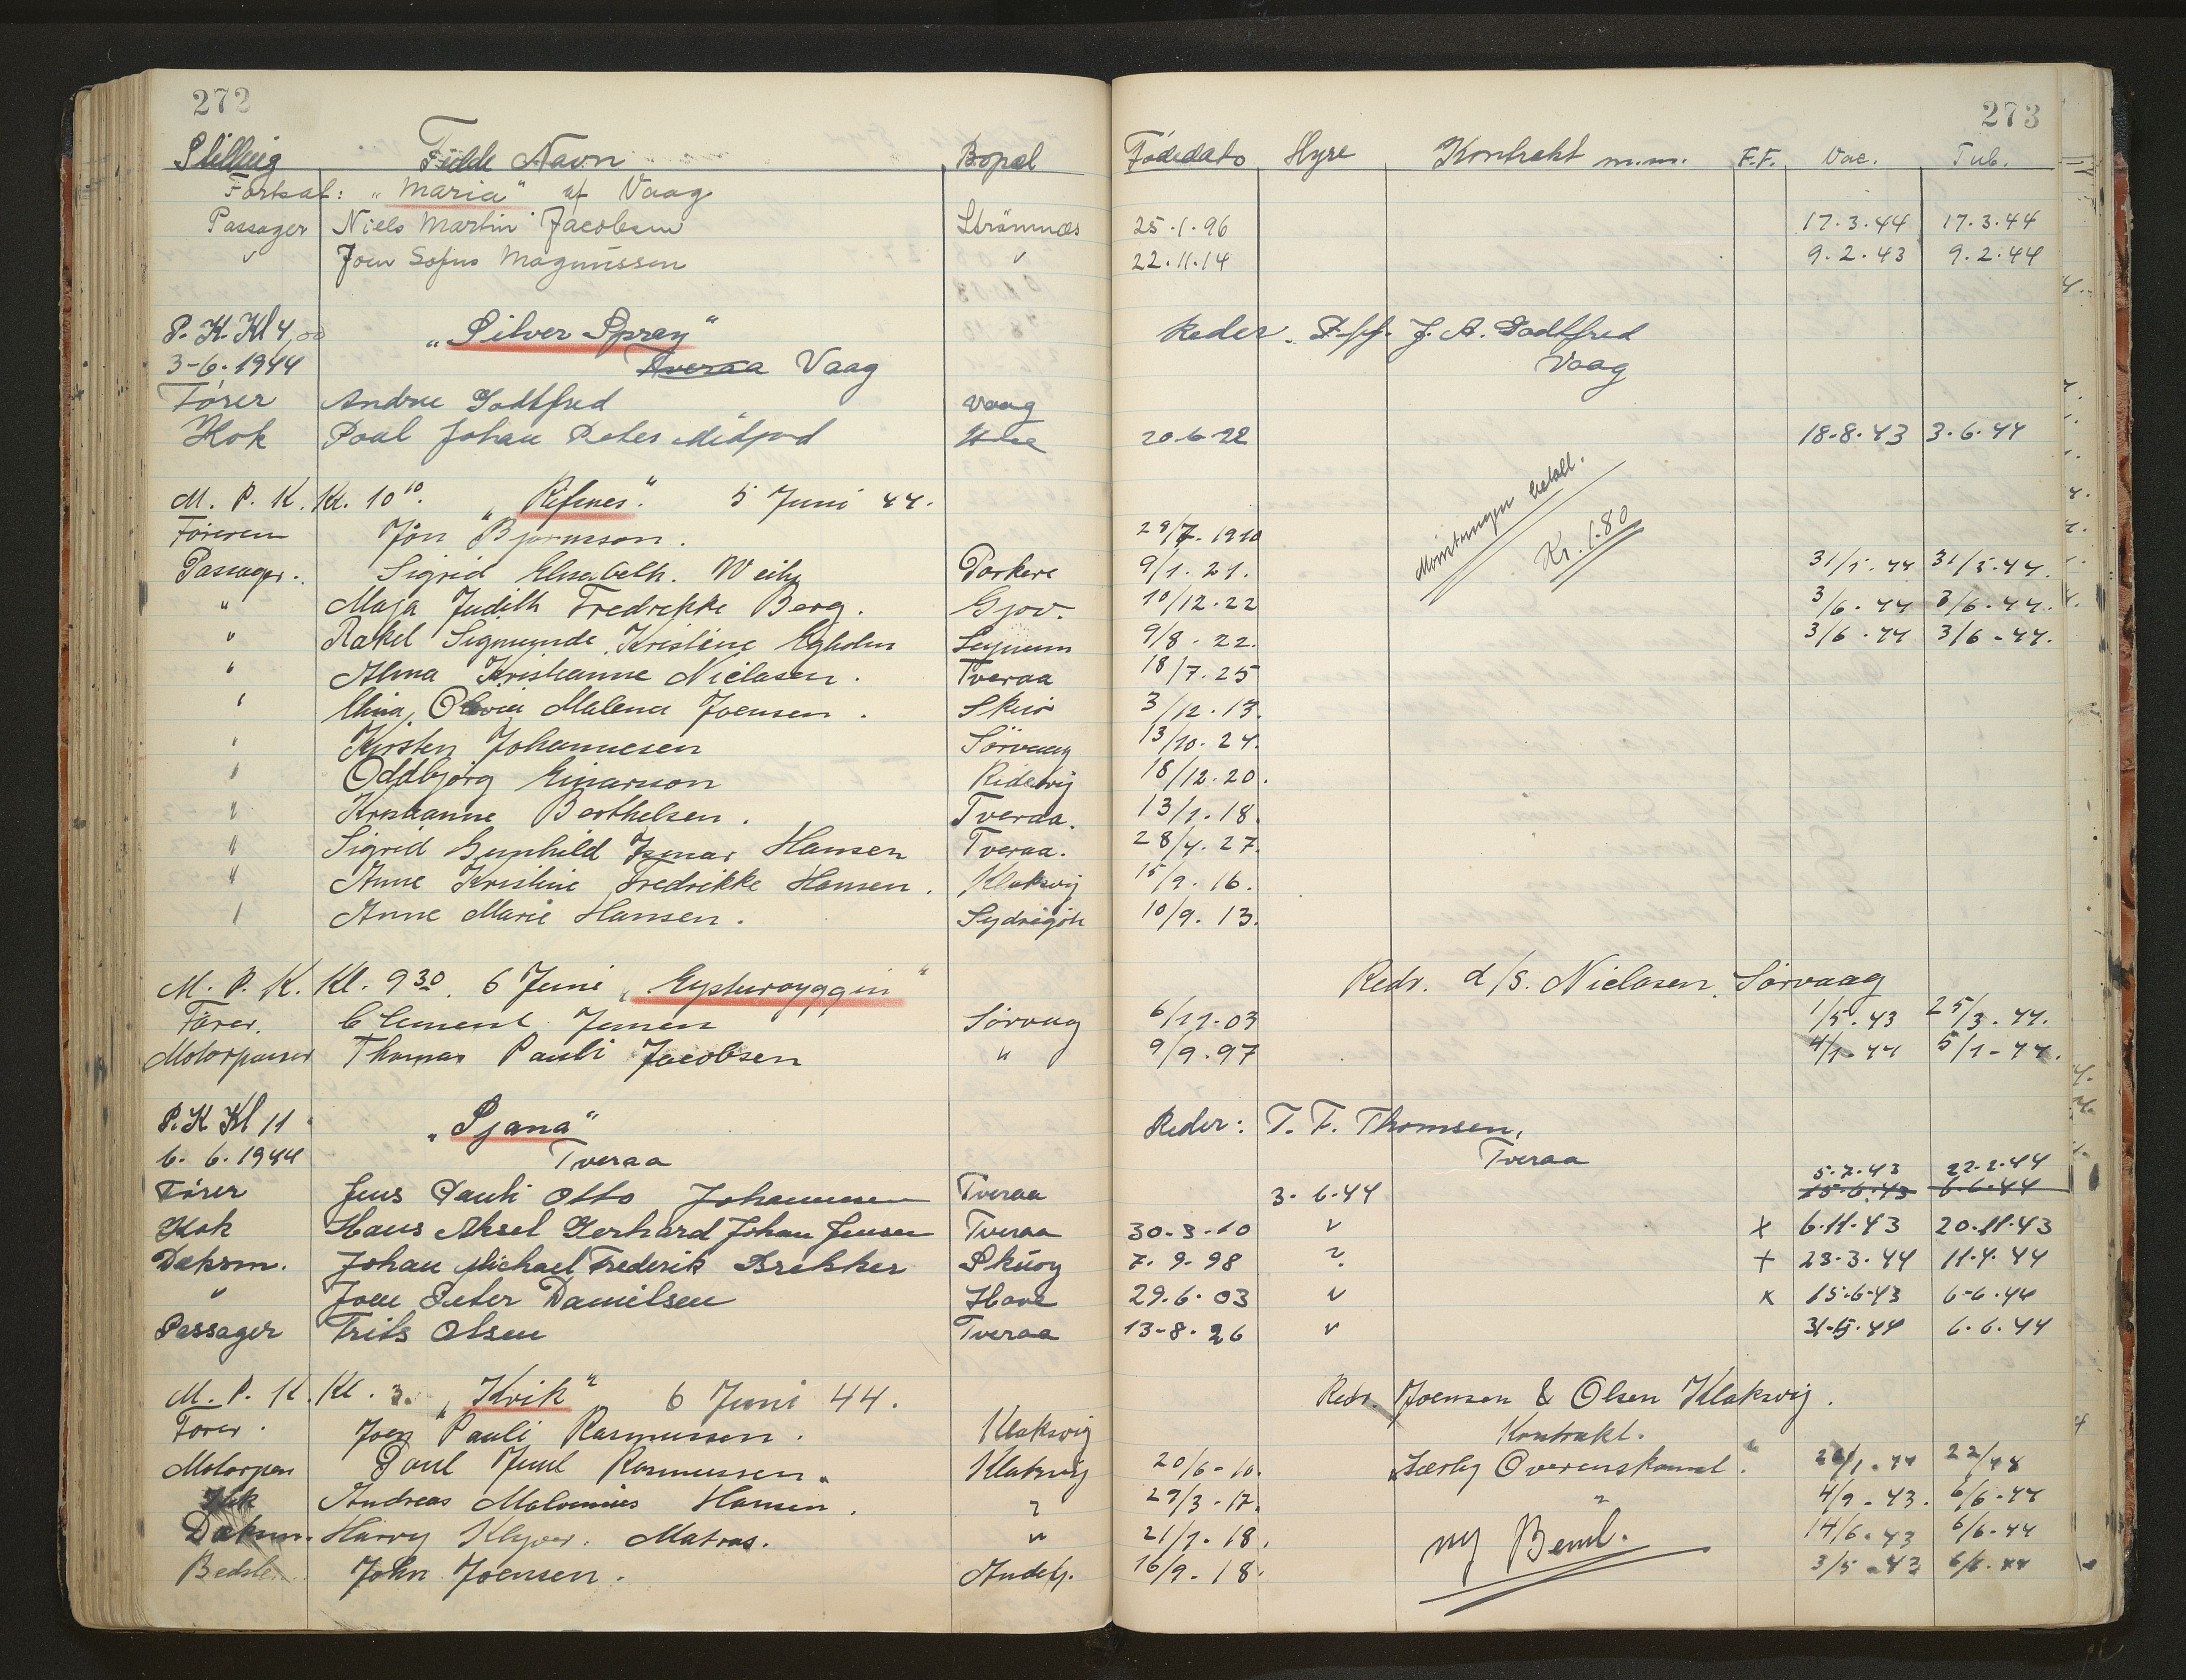 272
273
Stilling Fulde Navn Bopæl Fødedato Hyre Kontrakt m.m. F.F. Vac. Tub.
Fortsat: "Maria" af Vaag
Passager Niels Martin Jacobsen Strømnæs 25.1.96 17.3.44 17.3.44
" Joen Sofus Magnussen " 22.11.14 9.2.43 9.2.44
P.K. Kl 4,00 "Silver Spray" Reder. J. A. Godtfred
3-6-1944 Tveraa Vaag Vaag
Fører Andrue Godtfred Vaag
Kok Poul Johan Peter Midjord 20.6.22 18.8.43 3.6.44
M. P. K. Kl. 10 10. "Rifsnes". 5 Juni 44. Mønstringen betalt.
Føreren Jón Bjørnsson. 29/7-1910 Kr. 1.80
Passager. Sigrid Elisabeth. Weihe Porkere 9/1.21. 31/5.44 31/5.44.
" Maja Judith Fredrikke Berg. Gjov. 10/12.22 3/6.44 3/6.44.
" Rakel Sigmunde Kristine Egholm Leynum 9/8.22. 3/6.44 3/6-44.
" Alma Kristianne Niclasen. Tveraa 18/7.25
" Olivia Malena Joensen. 3/12.13.
" Kirsten Johannesen Sørvaag 13/10.24.
" Oddbjørg Einarsson Ridevig 18/12.20.
" Kristianne Berthelsen. Tveraa. 13/1.18.
" Sigrid Gunhild Ismar Hansen Tveraa. 28/4.27.
" Anne Kristine Fredrikke Hansen. Klaksvig 15/9.16.
" Anne Marie Hansen. 10/9.13.
M. P. K. Kl. 9 30. 6 Juni "Eysturoyggin" Redr. d/s. Niclasen, Sørvaag
Fører. Clement Jensen Sørvaag 6/11-03 1/5.43 25/3-44.
Motorpasser Thomas Pauli Jacobsen " 9/9.97 4/1-44 5/1-44.
P.K. Kl 11 "Sjana" Reder: T. F. Thomsen,
6.6.1944 Tveraa Tveraa
5.7.43 22.2.44
Fører Jens Pauli Otto Johannesen Tveraa 3.6.44 15.6.43 6.6.44
Kok Hans Aksel Gerhard Johan Jensen Tveraa 30.3.10 " x 6.11.43 20.11.43
Dæksm. Johan Michael Frederik Brekker Skúoy 7.9.98 " + 23.3.44 11.4.44
" Joen Peter Danielsen Hove 29.6.03 " x 15.6.43 6-6.44
Passager Frits Olsen Tveraa 13-8.26 " 31.5.44 6.6.44
M. P. K. Kl. 3. "Kvik" 6 Juni 44. Redr. Joensen & Olsen Klaksvig.
Fører. Joen Pauli Rasmussen. Klaksvig Kontrakt.
Motorpas Poul Juul Rasmussen. Klaksvig 20/6-10. Særlig Overenskomst.
Kok Andreas Hansen. " 29/3-17. " 4/9-43. 6/6-44
Dæksm. Harry Klyver. Matras. " 21/1-18. ny Beml. 14/6-43 6/6-44
John Joensen. Andefj. 16/9-18. 3/5-43 6/6-44